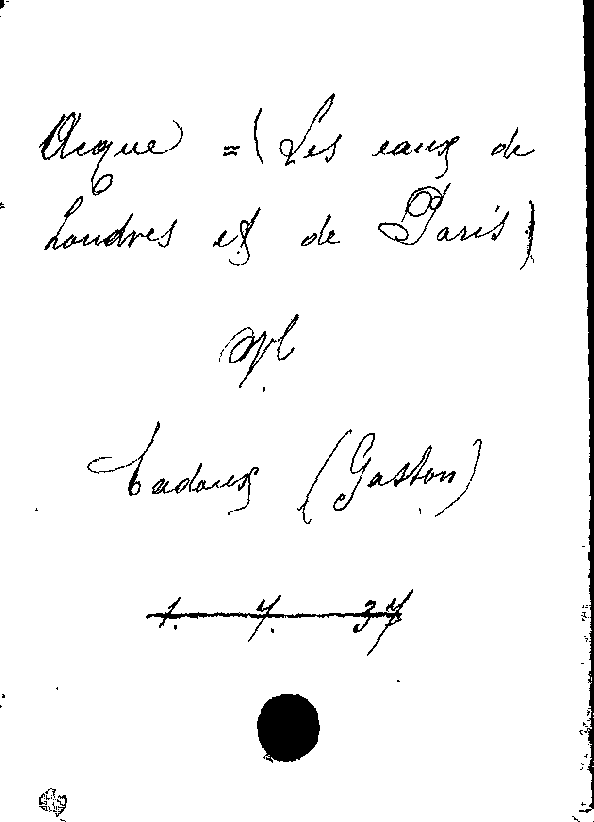 Acque = (Les eaux de
Londres et de Paris)
Cadoux (Gaston)
1. 7. 37